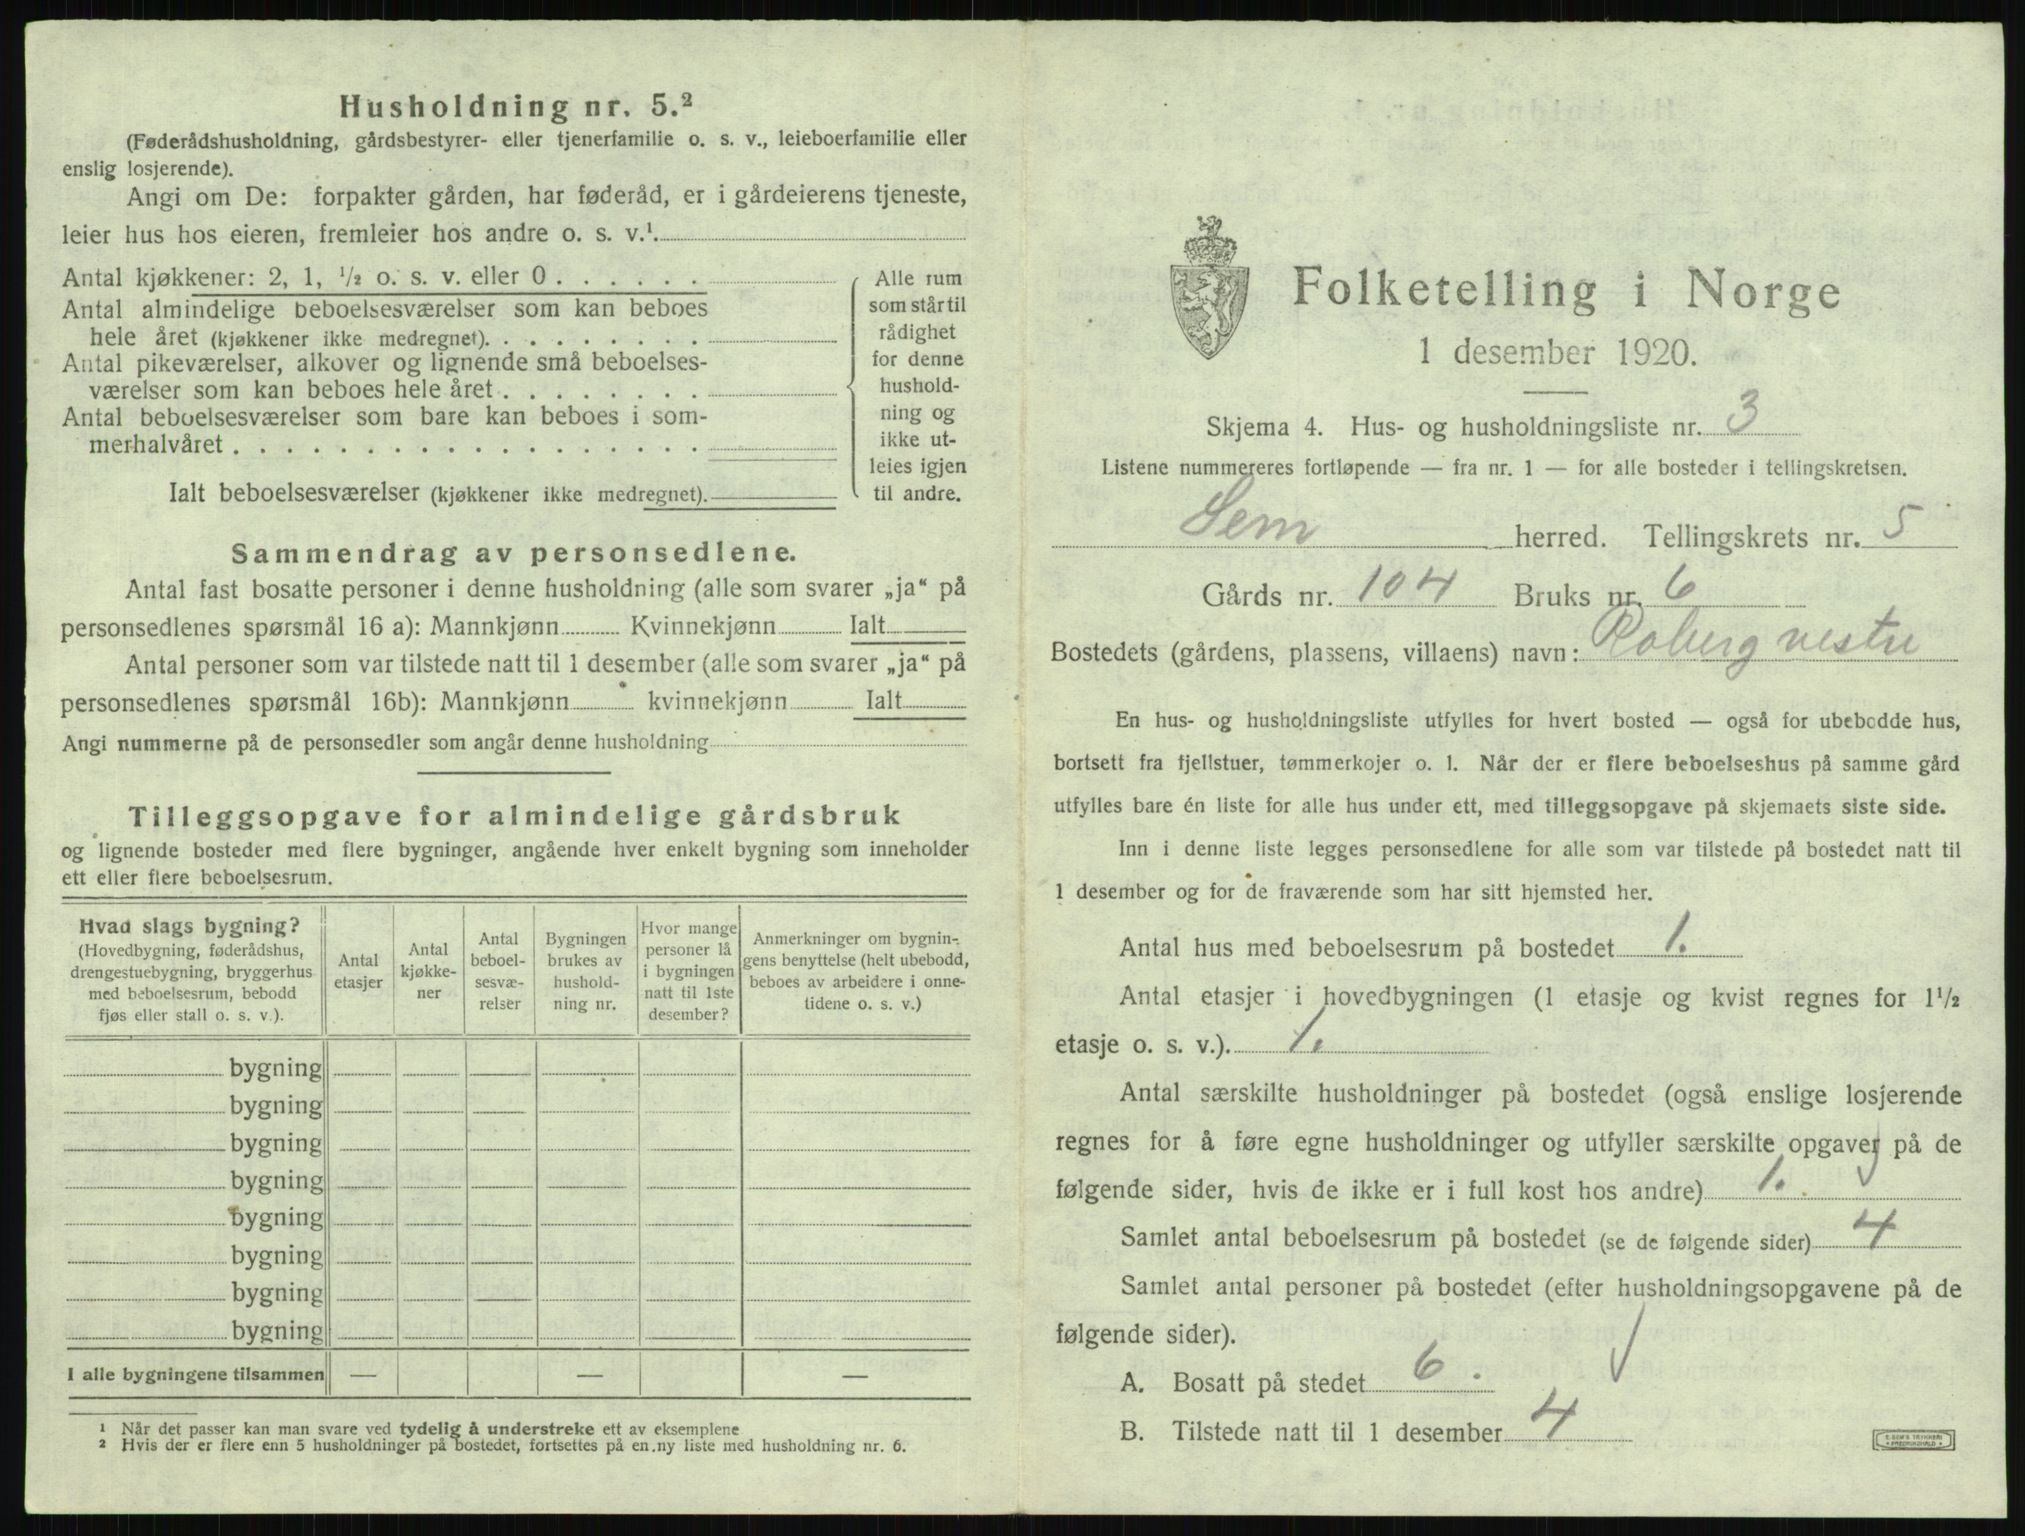 Husholdning nr. 5.²
(Føderådshusholdning, gårdsbestyrer- eller tjenerfamilie o. s. v., leieboerfamilie eller
enslig losjerende).
Angi om De: forpakter gården, har føderåd, er i gårdeierens tjeneste,
leier hus hos eieren, fremleier hos andre o. s. v.¹.
Antal kjøkkener: 2, 1, ½ o. s. v. eller 0 . . . . . .
Antal almindelige beboelsesværelser som kan beboes
hele året (kjøkkener ikke medregnet). . . . . . . . .
Antal pikeværelser, alkover og lignende små beboelses-
værelser som kan beboes hele året . . . . . . . .
Antal beboelsesværelser som bare kan beboes i som-
merhalvåret . . . . . . . . . . . . . . . . . .
Ialt beboelsesværelser (kjøkkener ikke medregnet).
Alle rum
som står til
rådighet
for denne
hushold-
ning og
ikke ut-
leies igjen
til andre.
Sammendrag av personsedlene.
Antal fast bosatte personer i denne husholdning (alle som svarer „ja“ på
personsedlenes spørsmål 16 a): Mannkjønn Kvinnekjønn Ialt
Antal personer som var tilstede natt til 1 desember (alle som svarer „ja“ på
personsedlenes spørsmål 16b): Mannkjønn kvinnekjønn Ialt
Angi nummerne på de personsedler som angår denne husholdning
Tilleggsopgave for almindelige gårdsbruk
og lignende bosteder med flere bygninger, angående hver enkelt bygning som inneholder
ett eller flere beboelsesrum.
Hvad slags bygning?
(Hovedbygning, føderådshus,
drengestuebygning, bryggerhus
med beboelsesrum, bebodd
fjøs eller stall o. s. v.).
Antal
etasjer
Antal
kjøkke-
ner
Antal
beboel-
sesvæ-
relser
Bygningen
brukes av
hushold-
ning nr.
Hvor mange
personer lå
i bygningen
natt til 1ste
desember?
Anmerkninger om bygnin-
gens benyttelse (helt ubebodd,
beboes av arbeidere i onne-
tidene o. s. v.)
bygning
bygning
bygning
bygning
bygning
bygning
bygning
bygning
I alle bygningene tilsammen — — —
¹ Når det passer kan man svare ved tydelig å understreke ett av eksemplene
² Hvis der er flere enn 5 husholdninger på bostedet, fortsettes på en ny liste med husholdning nr. 6.
Folketelling i Norge
1 desember 1920.
Skjema 4. Hus- og husholdningsliste nr. 3
Listene nummereres fortløpende — fra nr. 1 — for alle bosteder i tellingskretsen.
Sem herred. Tellingskrets nr. 5
Gårds nr. 104 Bruks nr. 6
Bostedets (gårdens, plassens, villaens) navn: Roberg vestre
En hus- og husholdningsliste utfylles for hvert bosted — også for ubebodde hus,
bortsett fra fjellstuer, tømmerkojer o. l. Når der er flere beboelseshus på samme gård
utfylles bare én liste for alle hus under ett, med tilleggsopgave på skjemaets siste side.
Inn i denne liste legges personsedlene for alle som var tilstede på bostedet natt til
1 desember og for de fraværende som har sitt hjemsted her.
Antal hus med beboelsesrum på bostedet 1.
Antal etasjer i hovedbygningen (1 etasje og kvist regnes for 1½
etasje o. s. v.). 1.
Antal særskilte husholdninger på bostedet (også enslige losjerende
regnes for å føre egne husholdninger og utfyller særskilte opgaver på de
følgende sider, hvis de ikke er i full kost hos andre) 1.
Samlet antal beboelsesrum på bostedet (se de følgende sider) 4
Samlet antal personer på bostedet (efter husholdningsopgavene på de
følgende sider).
A. Bosatt på stedet 6
B. Tilstede natt til 1 desember 4